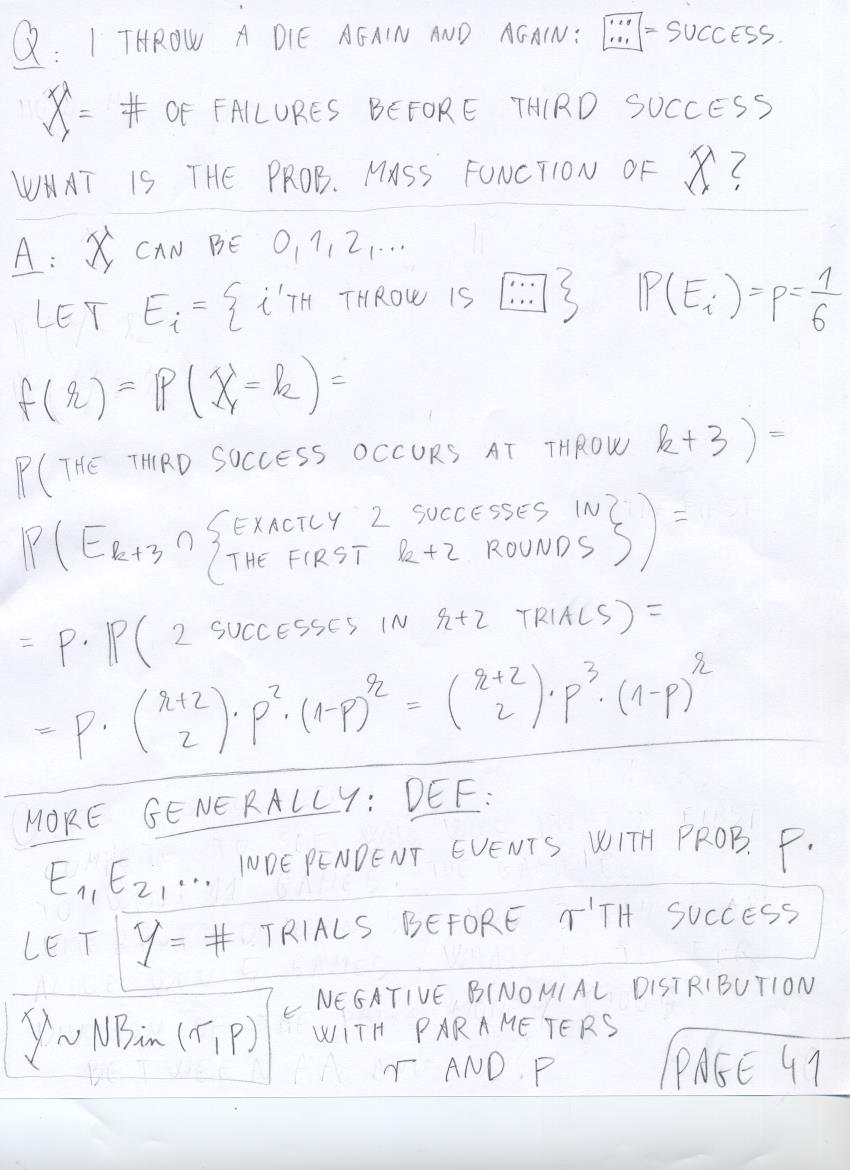 Q: I THROW A DIE AGAIN AND AGAIN: ⚅ = SUCCESS.
X = # OF FAILURES BEFORE THIRD SUCCESS
WHAT IS THE PROB. MASS FUNCTION OF X?
A: X CAN BE 0, 1, 2, ...
LET E_i = { i'TH THROW IS ⚅ } P(E_i) = p = 1/6
f(k) = P(X = k) =
P(THE THIRD SUCCESS OCCURS AT THROW k+3) =
P(E_{k+3} ∩ {EXACTLY 2 SUCCESSES IN THE FIRST k+2 ROUNDS}) =
= p · P(2 SUCCESSES IN k+2 TRIALS) =
= p · (k+2 2) · p^2 · (1-p)^k = (k+2 2) · p^3 · (1-p)^k
MORE GENERALLY: DEF:
E_1, E_2, ... INDEPENDENT EVENTS WITH PROB. p.
LET Y = # TRIALS BEFORE r'TH SUCCESS
Y ~ NBin(r, p) ← NEGATIVE BINOMIAL DISTRIBUTION
WITH PARAMETERS
r AND p
PAGE 41